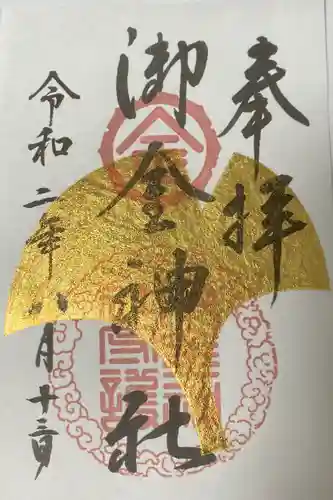 奉拝
御金神社
令和二年八月十三日
金